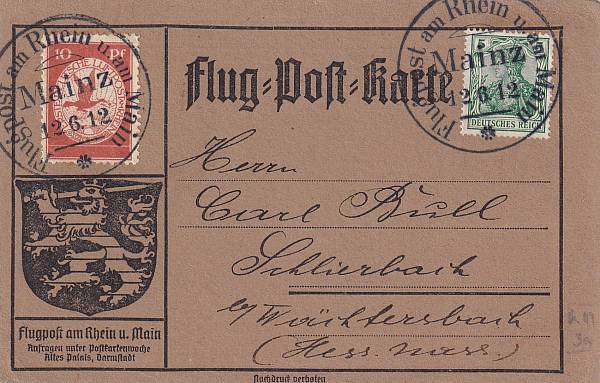 Flugpost am Rhein u. am Main
Mainz
12.6.12
10 Pf
Flug-Post-Karte
Flugpost am Rhein u. am Main
Mainz
12.6.12
5
DEUTSCHES REICH
Herrn
Carl Bull
Schlierbach
b/Wächtersbach
(Hess. Nass.)
Flugpost am Rhein u. Main
Anfragen unter Postkartenwoche
Altes Palais, Darmstadt
Nachdruck verboten